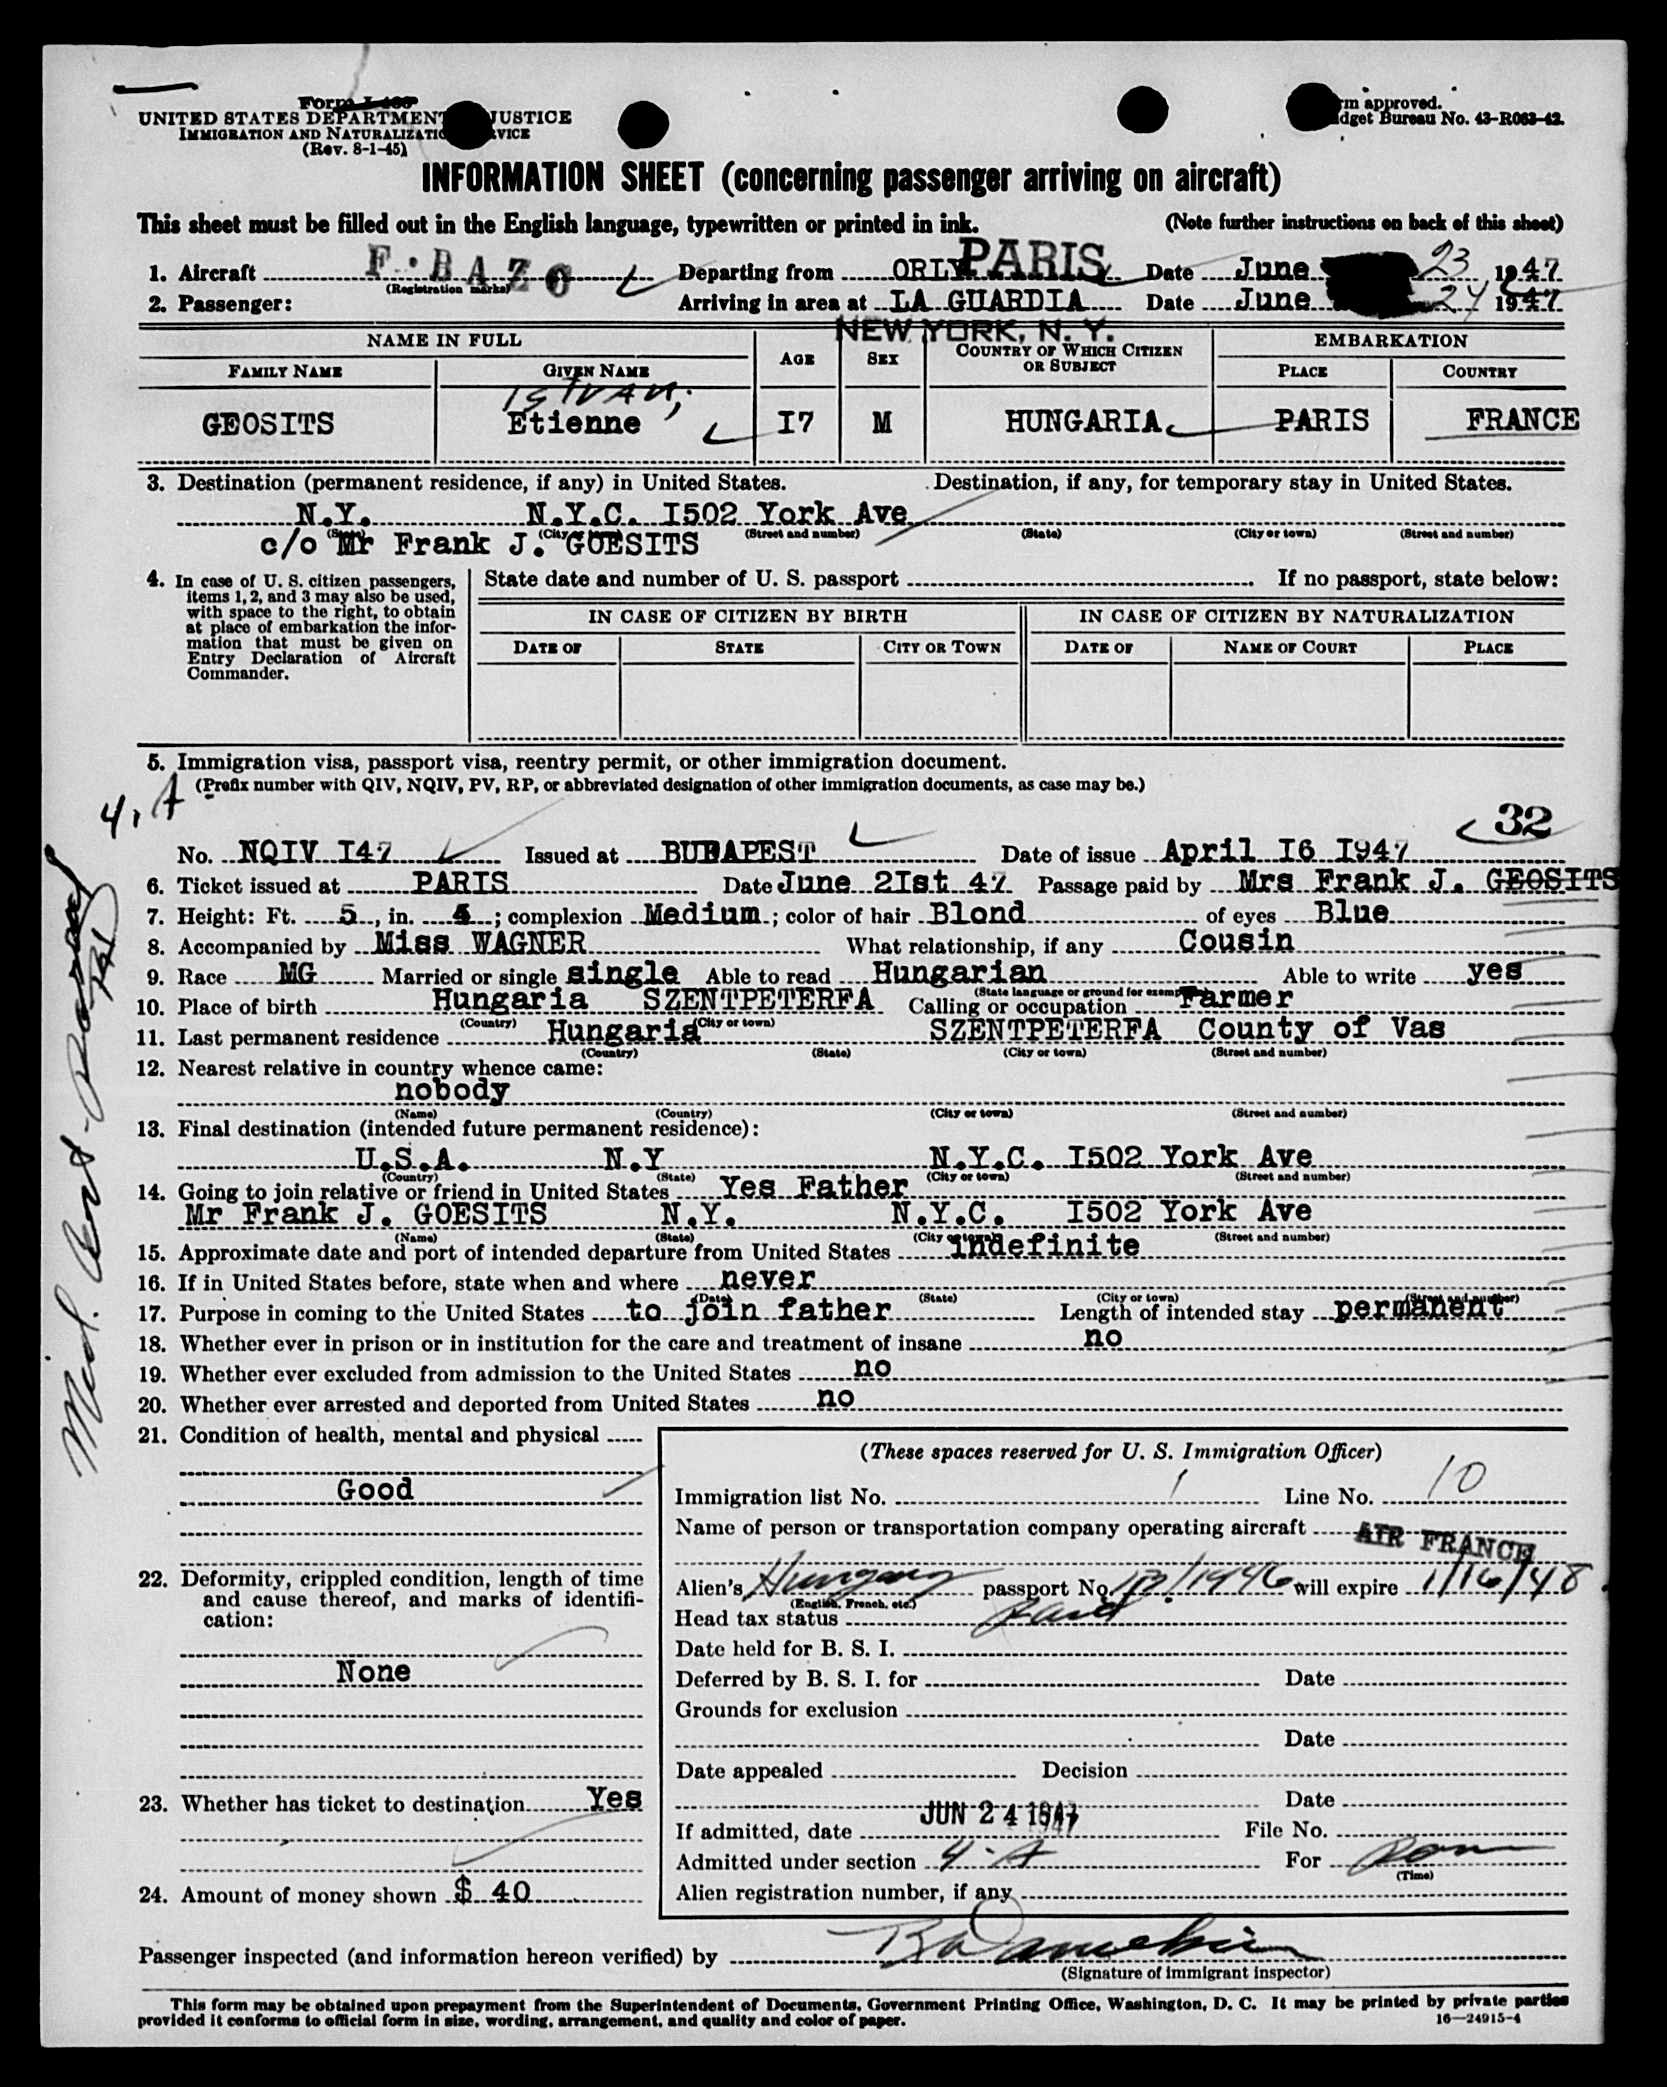 Form I-466
UNITED STATES DEPARTMENT JUSTICE
IMMIGRATION AND NATURALIZATIO VICE
(Rev. 8-1-45)
rm approved.
dget Bureau No. 43-R063-42.
INFORMATION SHEET (concerning passenger arriving on aircraft)
This sheet must be filled out in the English language, typewritten or printed in ink. (Note further instructions on back of this sheet)
1. Aircraft F·BAZO Departing from ORLY PARIS Date June 23 1947
(Registration marks)
2. Passenger: Arriving in area at LA GUARDIA Date June 24 1947
NEW YORK, N. Y.
NAME IN FULL AGE SEX COUNTRY OF WHICH CITIZEN OR SUBJECT EMBARKATION
FAMILY NAME GIVEN NAME PLACE COUNTRY
ISTVAN;
GEOSITS Etienne I7 M HUNGARIA PARIS FRANCE
3. Destination (permanent residence, if any) in United States. Destination, if any, for temporary stay in United States.
N.Y. N.Y.C. I502 York Ave
(State) (City or town) (Street and number) (State) (City or town) (Street and number)
c/o Mr Frank J. GOESITS
4. In case of U. S. citizen passengers, items 1, 2, and 3 may also be used, with space to the right, to obtain at place of embarkation the information that must be given on Entry Declaration of Aircraft Commander.
State date and number of U. S. passport If no passport, state below:
IN CASE OF CITIZEN BY BIRTH IN CASE OF CITIZEN BY NATURALIZATION
DATE OF STATE CITY OR TOWN DATE OF NAME OF COURT PLACE
5. Immigration visa, passport visa, reentry permit, or other immigration document.
(Prefix number with QIV, NQIV, PV, RP, or abbreviated designation of other immigration documents, as case may be.)
4, A
32
No. NQIV I47 Issued at BUDAPEST Date of issue April I6 I947
6. Ticket issued at PARIS Date June 2Ist 47 Passage paid by Mrs Frank J. GEOSITS
7. Height: Ft. 5, in. 4; complexion Medium; color of hair Blond of eyes Blue
8. Accompanied by Miss WAGNER What relationship, if any Cousin
9. Race MG Married or single single Able to read Hungarian Able to write yes
(State language or ground for exemption)
10. Place of birth Hungaria SZENTPETERFA Calling or occupation Farmer
(Country) (City or town)
11. Last permanent residence Hungaria SZENTPETERFA County of Vas
(Country) (State) (City or town) (Street and number)
12. Nearest relative in country whence came:
nobody
(Name) (Country) (City or town) (Street and number)
13. Final destination (intended future permanent residence):
U.S.A. N.Y N.Y.C. I502 York Ave
(Country) (State) (City or town) (Street and number)
14. Going to join relative or friend in United States Yes Father
Mr Frank J. GOESITS N.Y. N.Y.C. I502 York Ave
(Name) (State) (City or town) (Street and number)
15. Approximate date and port of intended departure from United States indefinite
16. If in United States before, state when and where never
(Date) (State) (City or town) (Street and number)
17. Purpose in coming to the United States to join father Length of intended stay permanent
18. Whether ever in prison or in institution for the care and treatment of insane no
19. Whether ever excluded from admission to the United States no
20. Whether ever arrested and deported from United States no
21. Condition of health, mental and physical
Good
22. Deformity, crippled condition, length of time and cause thereof, and marks of identification:
None
23. Whether has ticket to destination Yes
24. Amount of money shown $ 40
(These spaces reserved for U. S. Immigration Officer)
Immigration list No. 1 Line No. 10
Name of person or transportation company operating aircraft AIR FRANCE
Alien's Hungary passport No. will expire 1/16/48.
(English, French, etc.)
Head tax status Paid
Date held for B. S. I.
Deferred by B. S. I. for Date
Grounds for exclusion
Date
Date appealed Decision
Date
If admitted, date JUN 24 1947 File No.
Admitted under section 4-A For Perm
(Time)
Alien registration number, if any
Passenger inspected (and information hereon verified) by
(Signature of immigrant inspector)
This form may be obtained upon prepayment from the Superintendent of Documents, Government Printing Office, Washington, D. C. It may be printed by private parties
provided it conforms to official form in size, wording, arrangement, and quality and color of paper. 16—24915-4
Med. Cert.